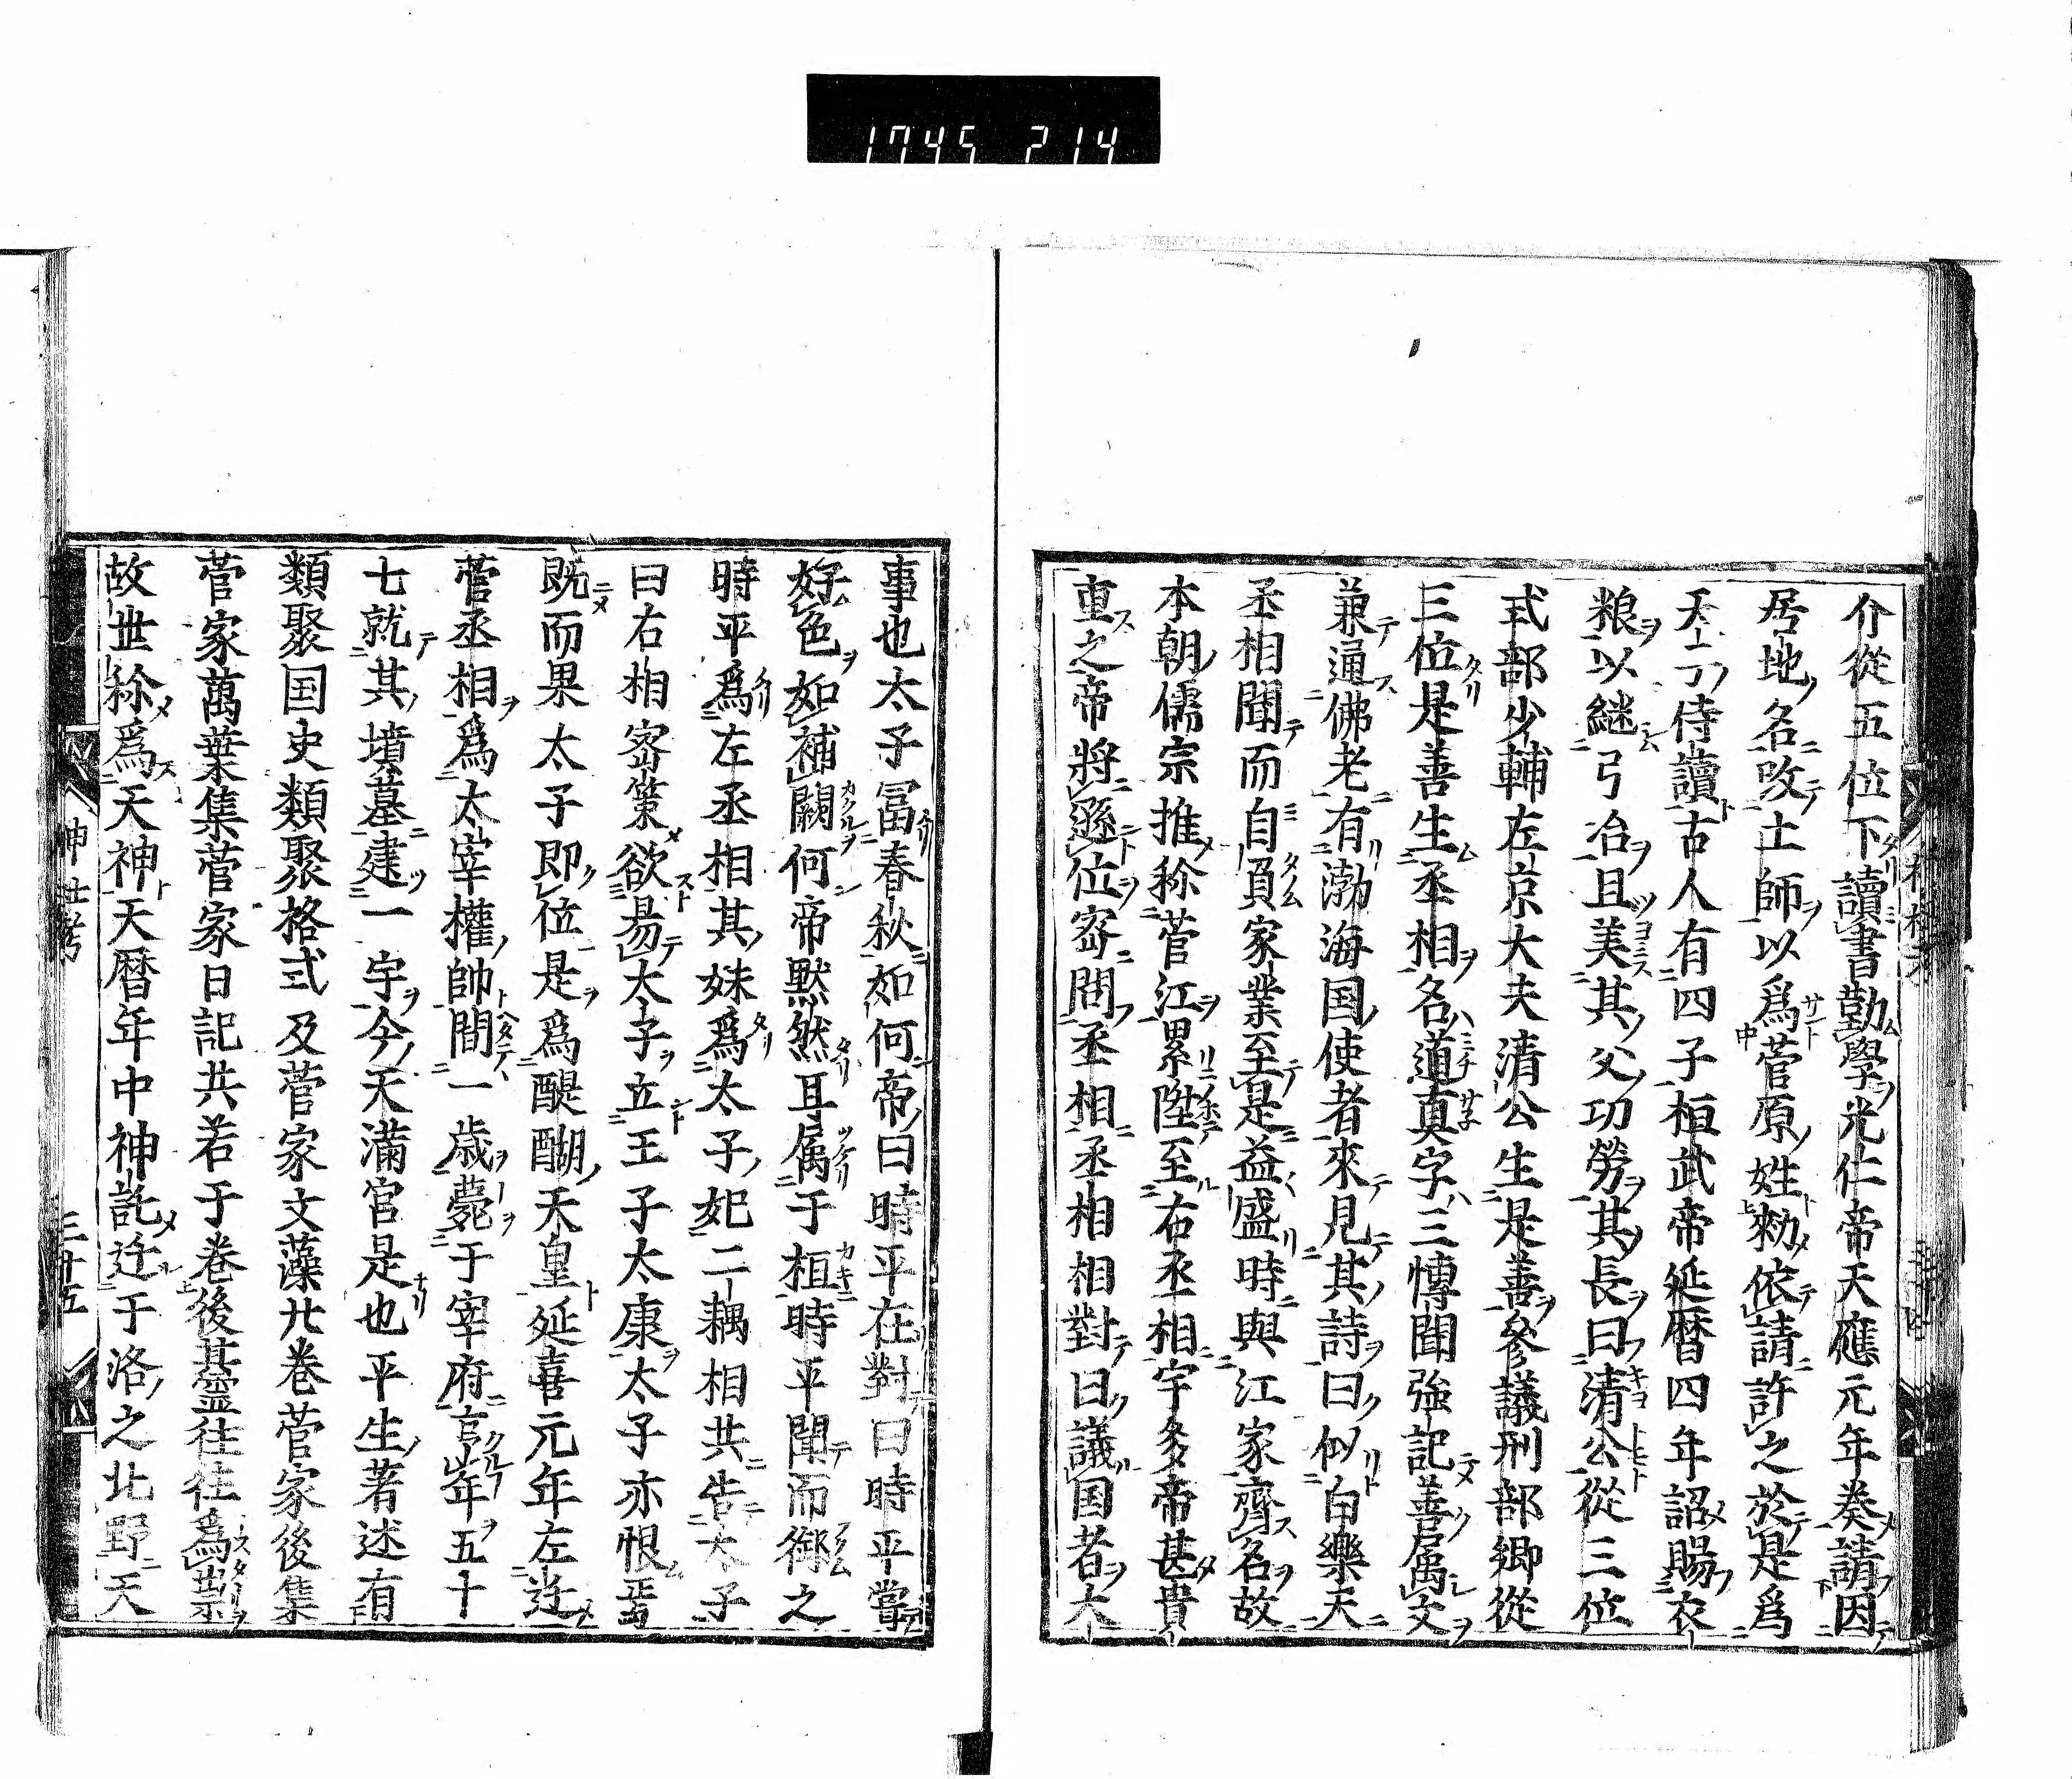 1745 214
介從五位下讀書勤學光仁帝天應元年奏請因
居地名改土師以爲菅原姓勑依請許之於是爲
天子侍讀古人有四子桓武帝延暦四年詔賜衣
粮以継弓冶且美其父功勞其長曰清公從三位
式部少輔左京大夫清公生是善參議刑部卿從
三位是善生丞相名道真字三博聞強記善属文
兼通佛老有渤海国使者來見其詩曰似白樂天
丞相聞而自負家業至是益盛時與江家齊名故
本朝儒宗推称菅江累陞至右丞相宇多帝甚貴
重之帝將遜位宻問丞相丞相相對曰議国者大
事也太子冨春秋如何帝曰時平在對曰時平嘗
好色如補闕何帝黙然耳属于垣時平聞而御之
時平爲左丞相其妹爲太子妃二耦相共告太子
曰右相宻策欲易太子立王子太康太子亦恨焉
既而果太子即位是爲醍醐天皇延喜元年左迁
菅丞相爲太宰權帥間一歳薨于宰府享年五十
七就其墳墓建一宇今天滿宮是也平生著述有
類聚国史類聚格式及菅家文藻廿卷菅家後集
菅家萬葉集菅家日記共若干卷後其霊往往爲祟
故世称爲天神天暦年中神託迁于洛之北野天
神社考
三十五